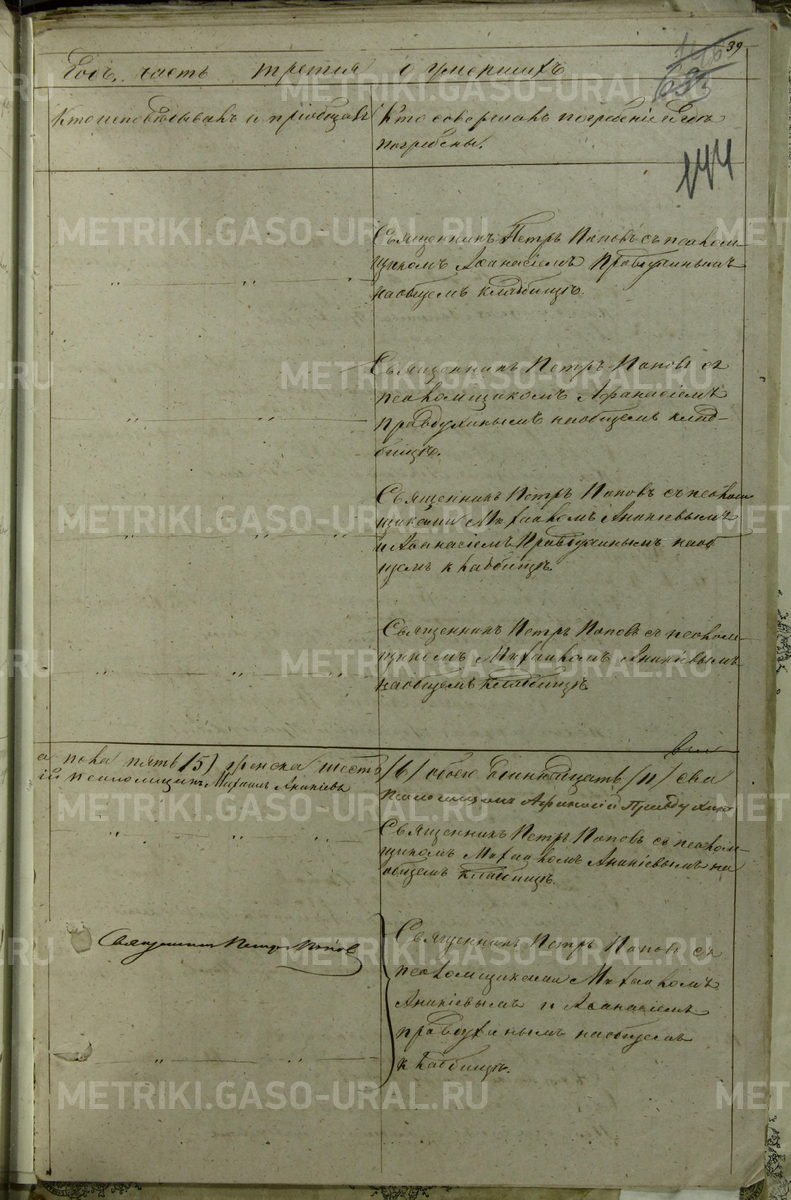 39
Годъ, часть третія о умершихъ
144
Кто исповѣдывалъ и пріобщалъ
Кто совершалъ погребеніе и гдѣ
погребены.
Священникъ Петръ Поповъ съ псалом-
щикомъ Аѳанасіемъ Правдухинымъ
на общемъ кладбищѣ.
Священникъ Петръ Поповъ съ
псаломщикомъ Афанасіемъ
Правдухинымъ на общемъ клад-
бищѣ.
Священникъ Петръ Поповъ съ псалом
щиками Михаиломъ Ананіевымъ
и Аѳанасіемъ Правдухинымъ на об
щемъ кладбищѣ.
Священникъ Петръ Поповъ съ псалом-
щикомъ Михаиломъ Ананіевымъ
на общемъ кладбищѣ
а пола пять /5/ женска шесть /6/ обоего одиннадцать /11/ сва
ій псаломщикъ Михаилъ Ананіевъ псаломщикъ Афанасій Правдухинъ
Священникъ Петръ Поповъ съ псалом-
щикомъ Михаиломъ Ананіевымъ на
общемъ кладбищѣ.
Священникъ Петръ Поповъ
Священникъ Петръ Поповъ съ
псаломщиками Михаиломъ
Ананіевымъ и Аѳанасіемъ
Правдухинымъ на общемъ
кладбищѣ.
METRIKI.GASO-URAL.RU